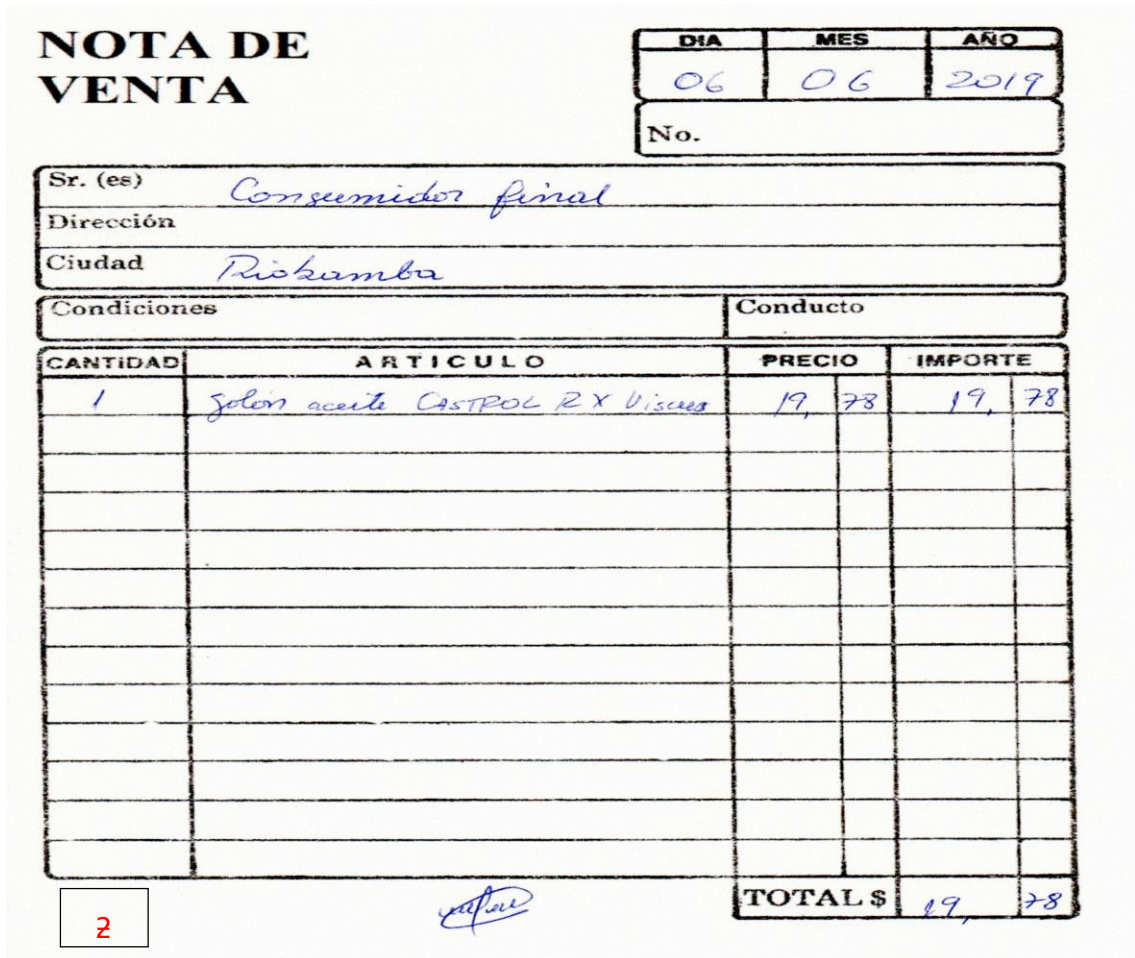 NOTA DE
VENTA
DIA MES AÑO
06 06 2019
No.
Sr. (es) Consumidor final
Dirección
Ciudad Riobamba
Condiciones Conducto
CANTIDAD ARTICULO PRECIO IMPORTE
1 galón aceite CASTROL RX Viscus 19, 78 19, 78
TOTAL $ 19, 78
2